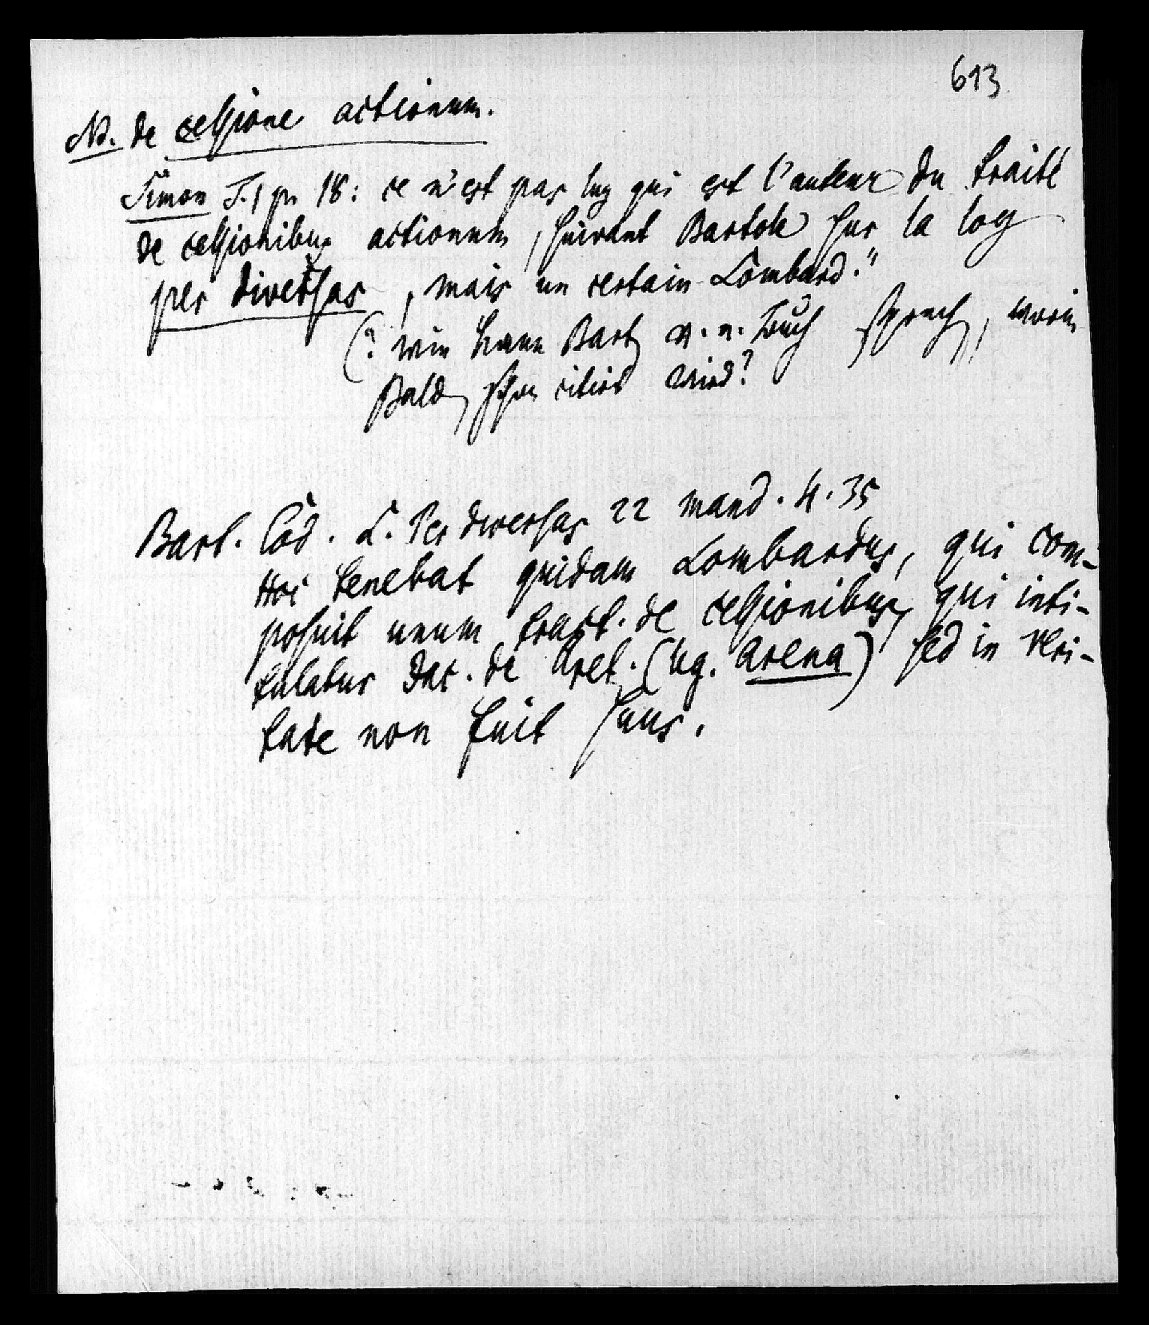 613
NB. de cessione actionum.
Simon T. 1 p. 18: ce n'est pas luy qui est l'auteur du traité
de cessionibus actionum, suivant Bartole sur la loy
per diversas, mais un certain Lombard."
(? wie kann Bart v. e. Buch sprech, worin
Bald schon citirt wird?
Bart. Cod. L. Per diversas 22 mand. 4. 35
Hoc tenebat quidam Lombardus, qui com-
posuit unum tract. de cessionibus, qui inti-
tulatur Jac. de Aret. (leg. Arena) sed in veri-
tate non fuit suus.